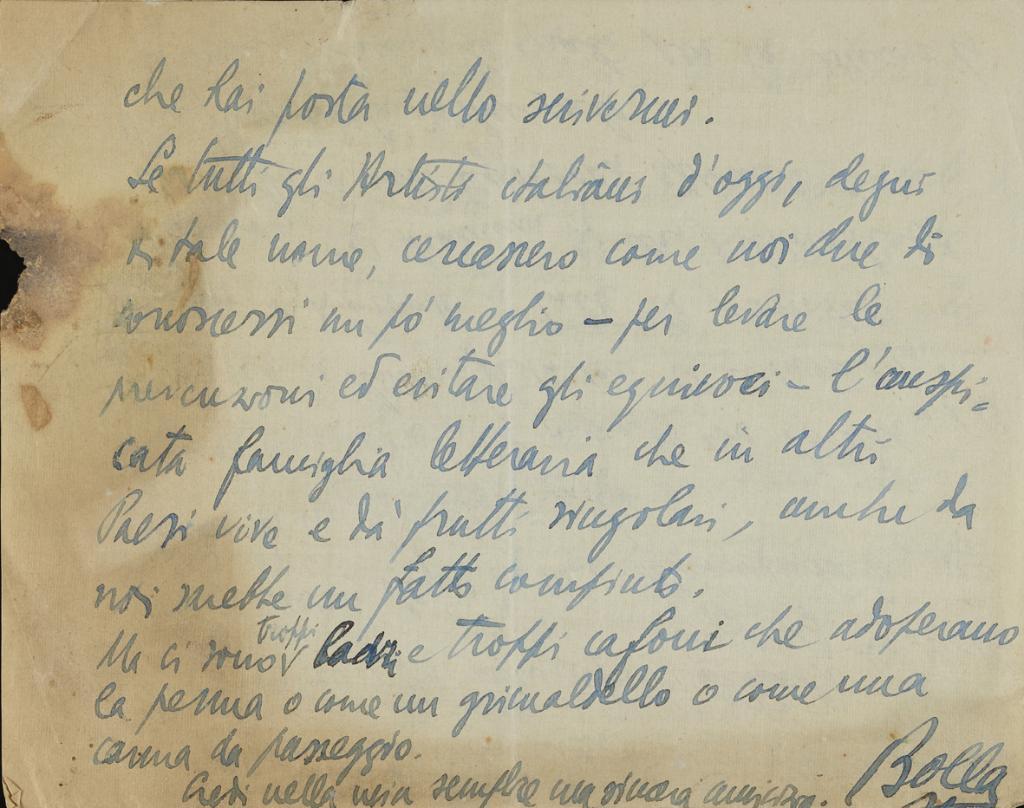 che hai posta nello scrivermi.
Se tutti gli Artisti italiani d'oggi, degni
di tale nome, cercassero come noi due di
conoscersi un pò meglio – per levare le
prevenzioni ed evitare gli equivoci – l'auspi=
cata famiglia letteraria che in altri
Paesi vive e dà frutti singolari, anche da
noi sarebbe un fatto compiuto.
Ma ci sono troppi ladri e troppi cafoni che adoperano
la penna o come un grimaldello o come una
canna da passeggio.
Credi nella mia sempre sincera amicizia.
Bolla